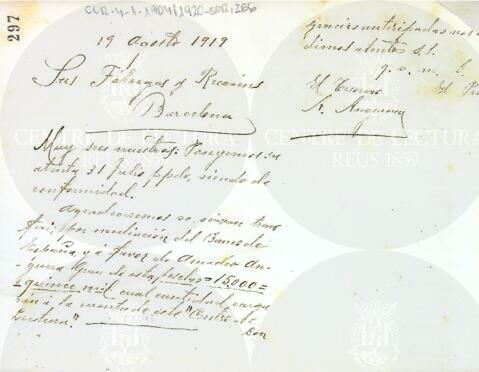 CLR-4-1-1904/1920-SOR:256
297
19 Agosto 1919
Sres Fábregas y Recasens
Barcelona
Muy Sres nuestros: Poseemos su
atenta 31 Julio ppdo, siendo de
conformidad.
Agradeceremos se sirvan trans
ferir por mediación del Banco de
España y á favor de Amadeo An-
guera de esta, pesetas = 15,000 =
quince mil cual cantidad carga
rán á la cuenta de este "Centro de
Lectura".
Con
gracias anticipadas nos
dimos atentos S.S.
q. e. m. b.
El Tesorero
A. Anguera
El
CENTRE DE LECTURA
REUS 1859
CENTRE DE LECTURA
REUS 1859